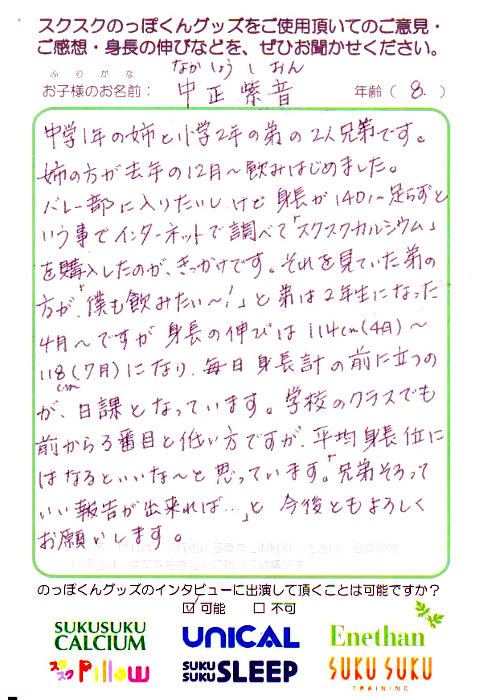 スクスクのっぽくんグッズをご使用頂いてのご意見・
ご感想・身長の伸びなどを、ぜひお聞かせください。
ふりがな なかしょう しおん
お子様のお名前： 中正紫音 年齢（ 8. ）
中学1年の姉と小学2年の弟の2人兄弟です。
姉の方が去年の12月〜飲みはじめました。
バレー部に入りたいしけど身長が140cm足らずと
いう事でインターネットで調べて「スクスクカルシウム」
を購入したのが、きっかけです。それを見ていた弟の
方が、「僕も飲みたい〜！」と弟は2年生になった
4月〜ですが身長の伸びは114cm(4月)〜
118cm(7月)になり、毎日身長計の前に立つの
が、日課となっています。学校のクラスでも
前から3番目と低い方ですが、平均身長位に
はなるといいな〜と思っています。「兄弟そろって
いい報告が出来れば…」と今後ともよろしく
お願いします。
のっぽくんグッズのインタビューに出演して頂くことは可能ですか？
☑ 可能 □ 不可
SUKUSUKU CALCIUM
UNICAL
Enethan
スクスク Pillow
SUKU SUKU SLEEP
SUKU SUKU TRAINING